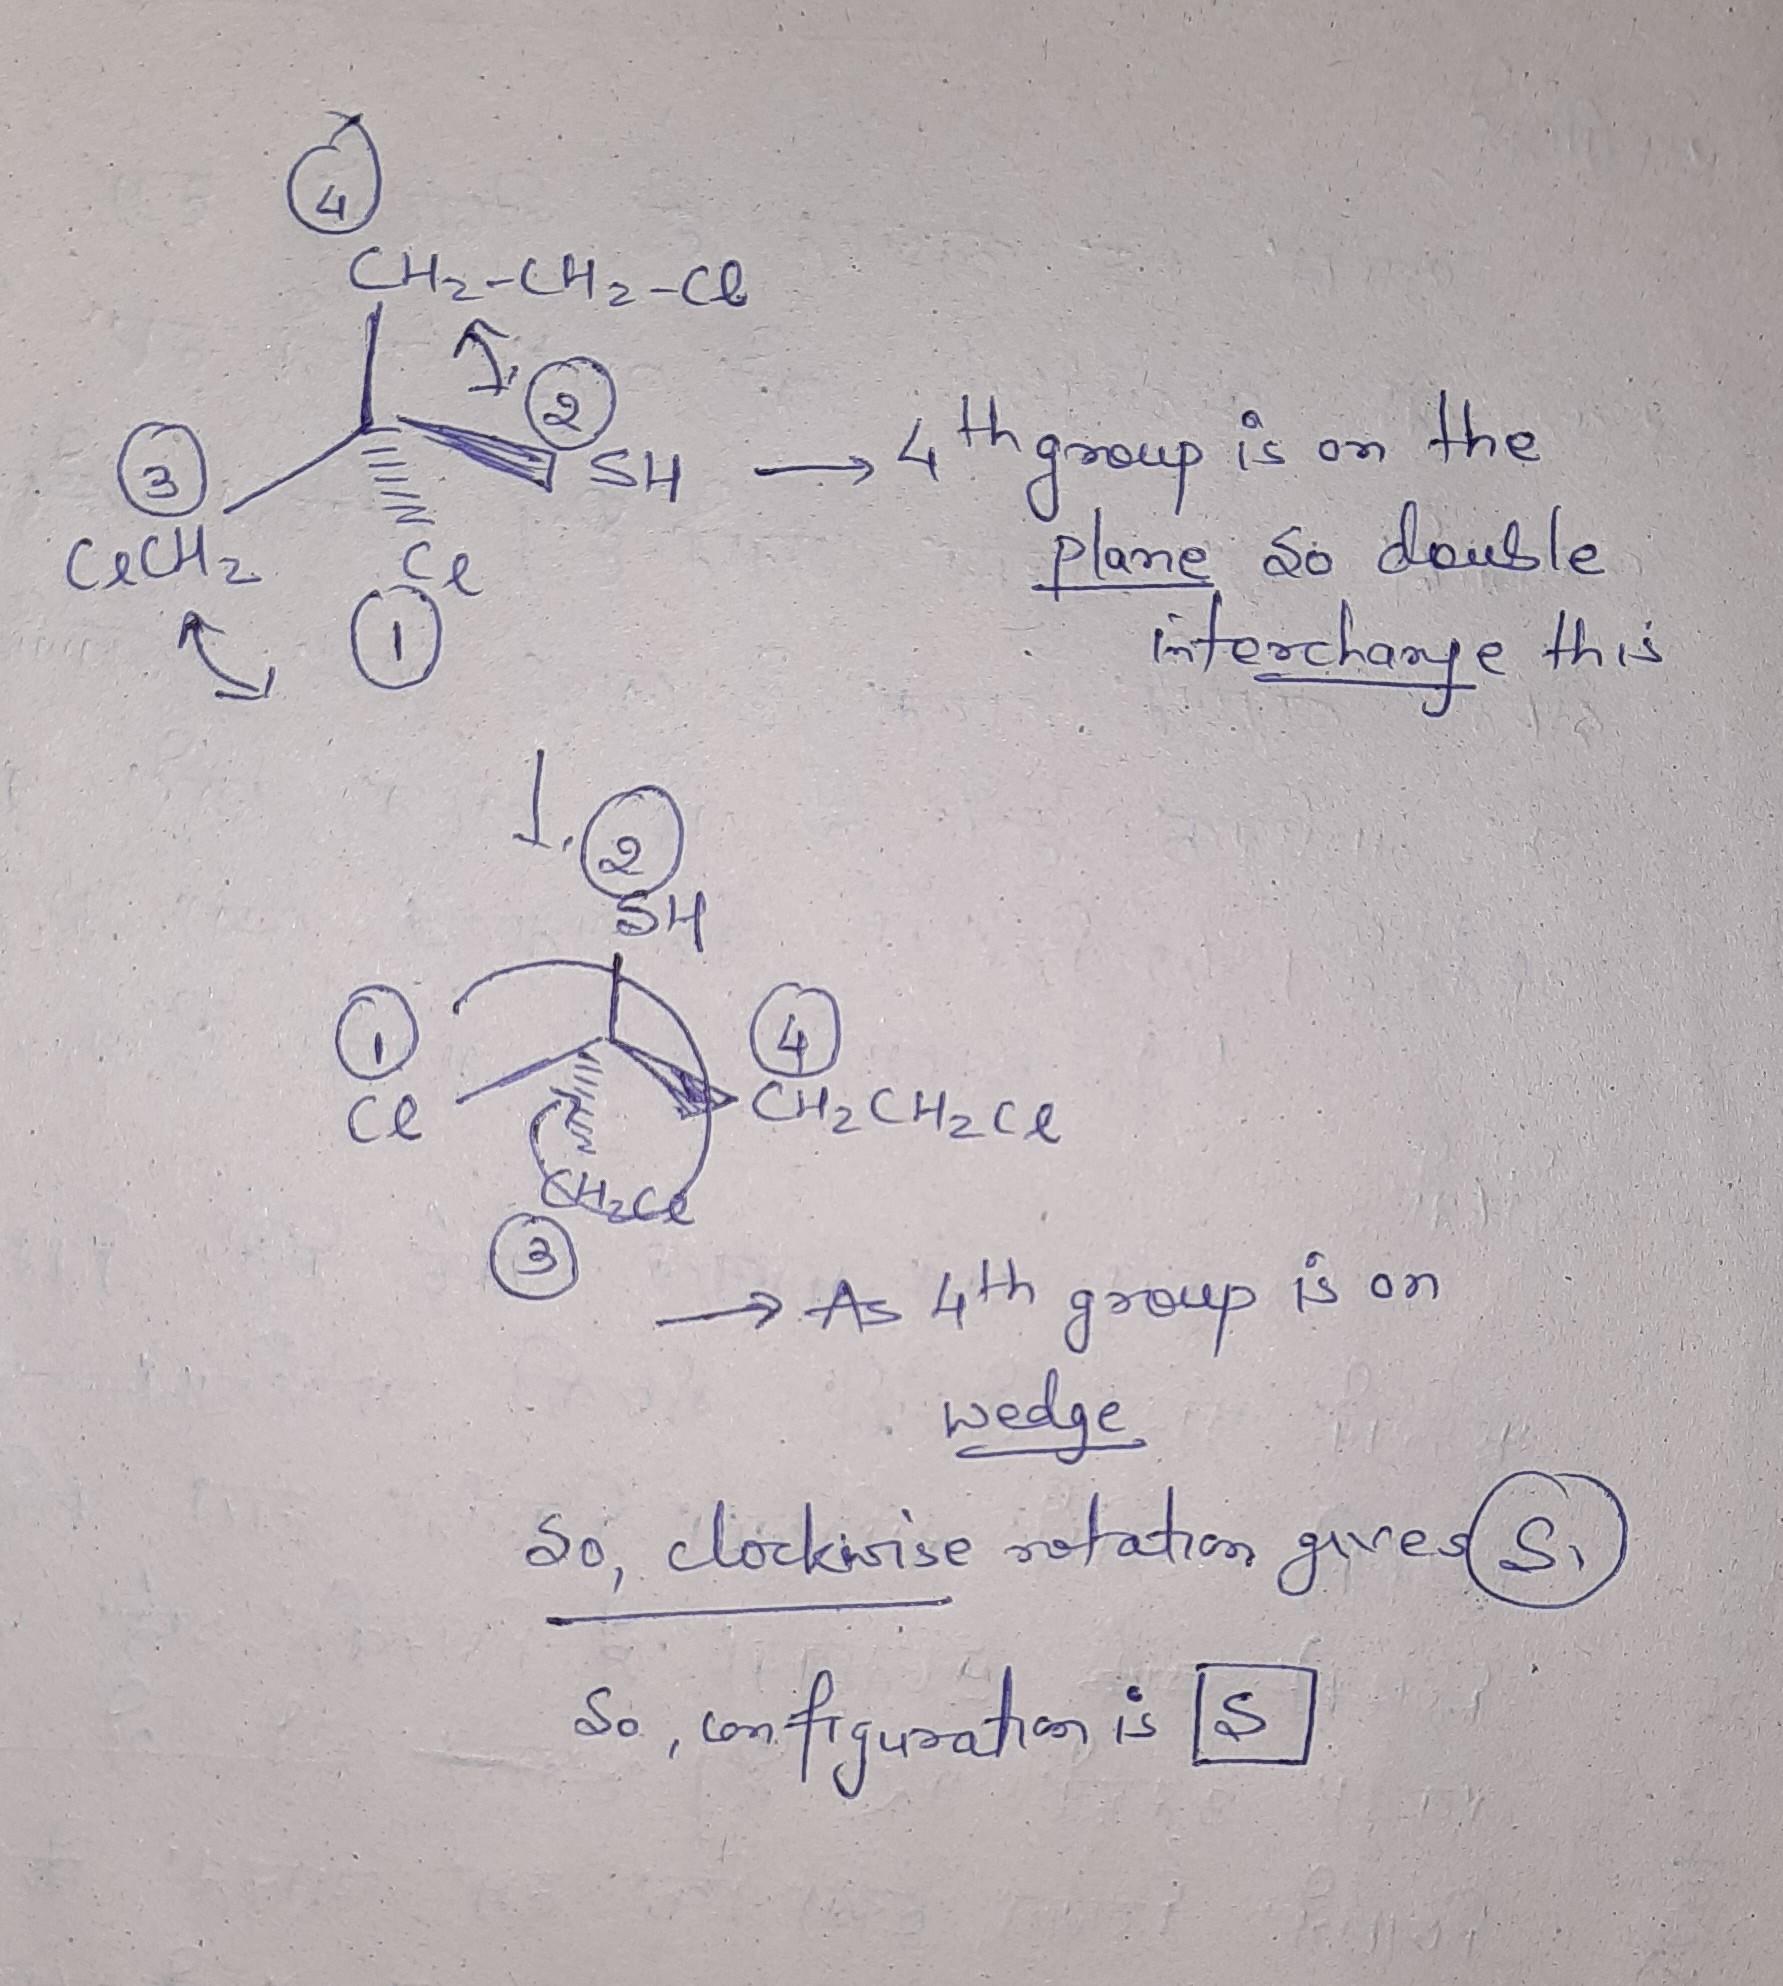 4
CH2-CH2-Cl
2
3
SH → 4th group is on the
ClCH2 Cl plane so double
1 interchange this
2
SH
1 4
Cl CH2CH2Cl
CH2Cl
3
→ As 4th group is on
wedge
So, clockwise rotation gives S,
So, configuration is S